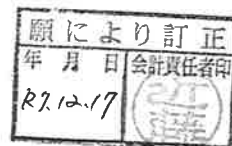 願により訂正
年月日 会計責任者印
R7.12.17